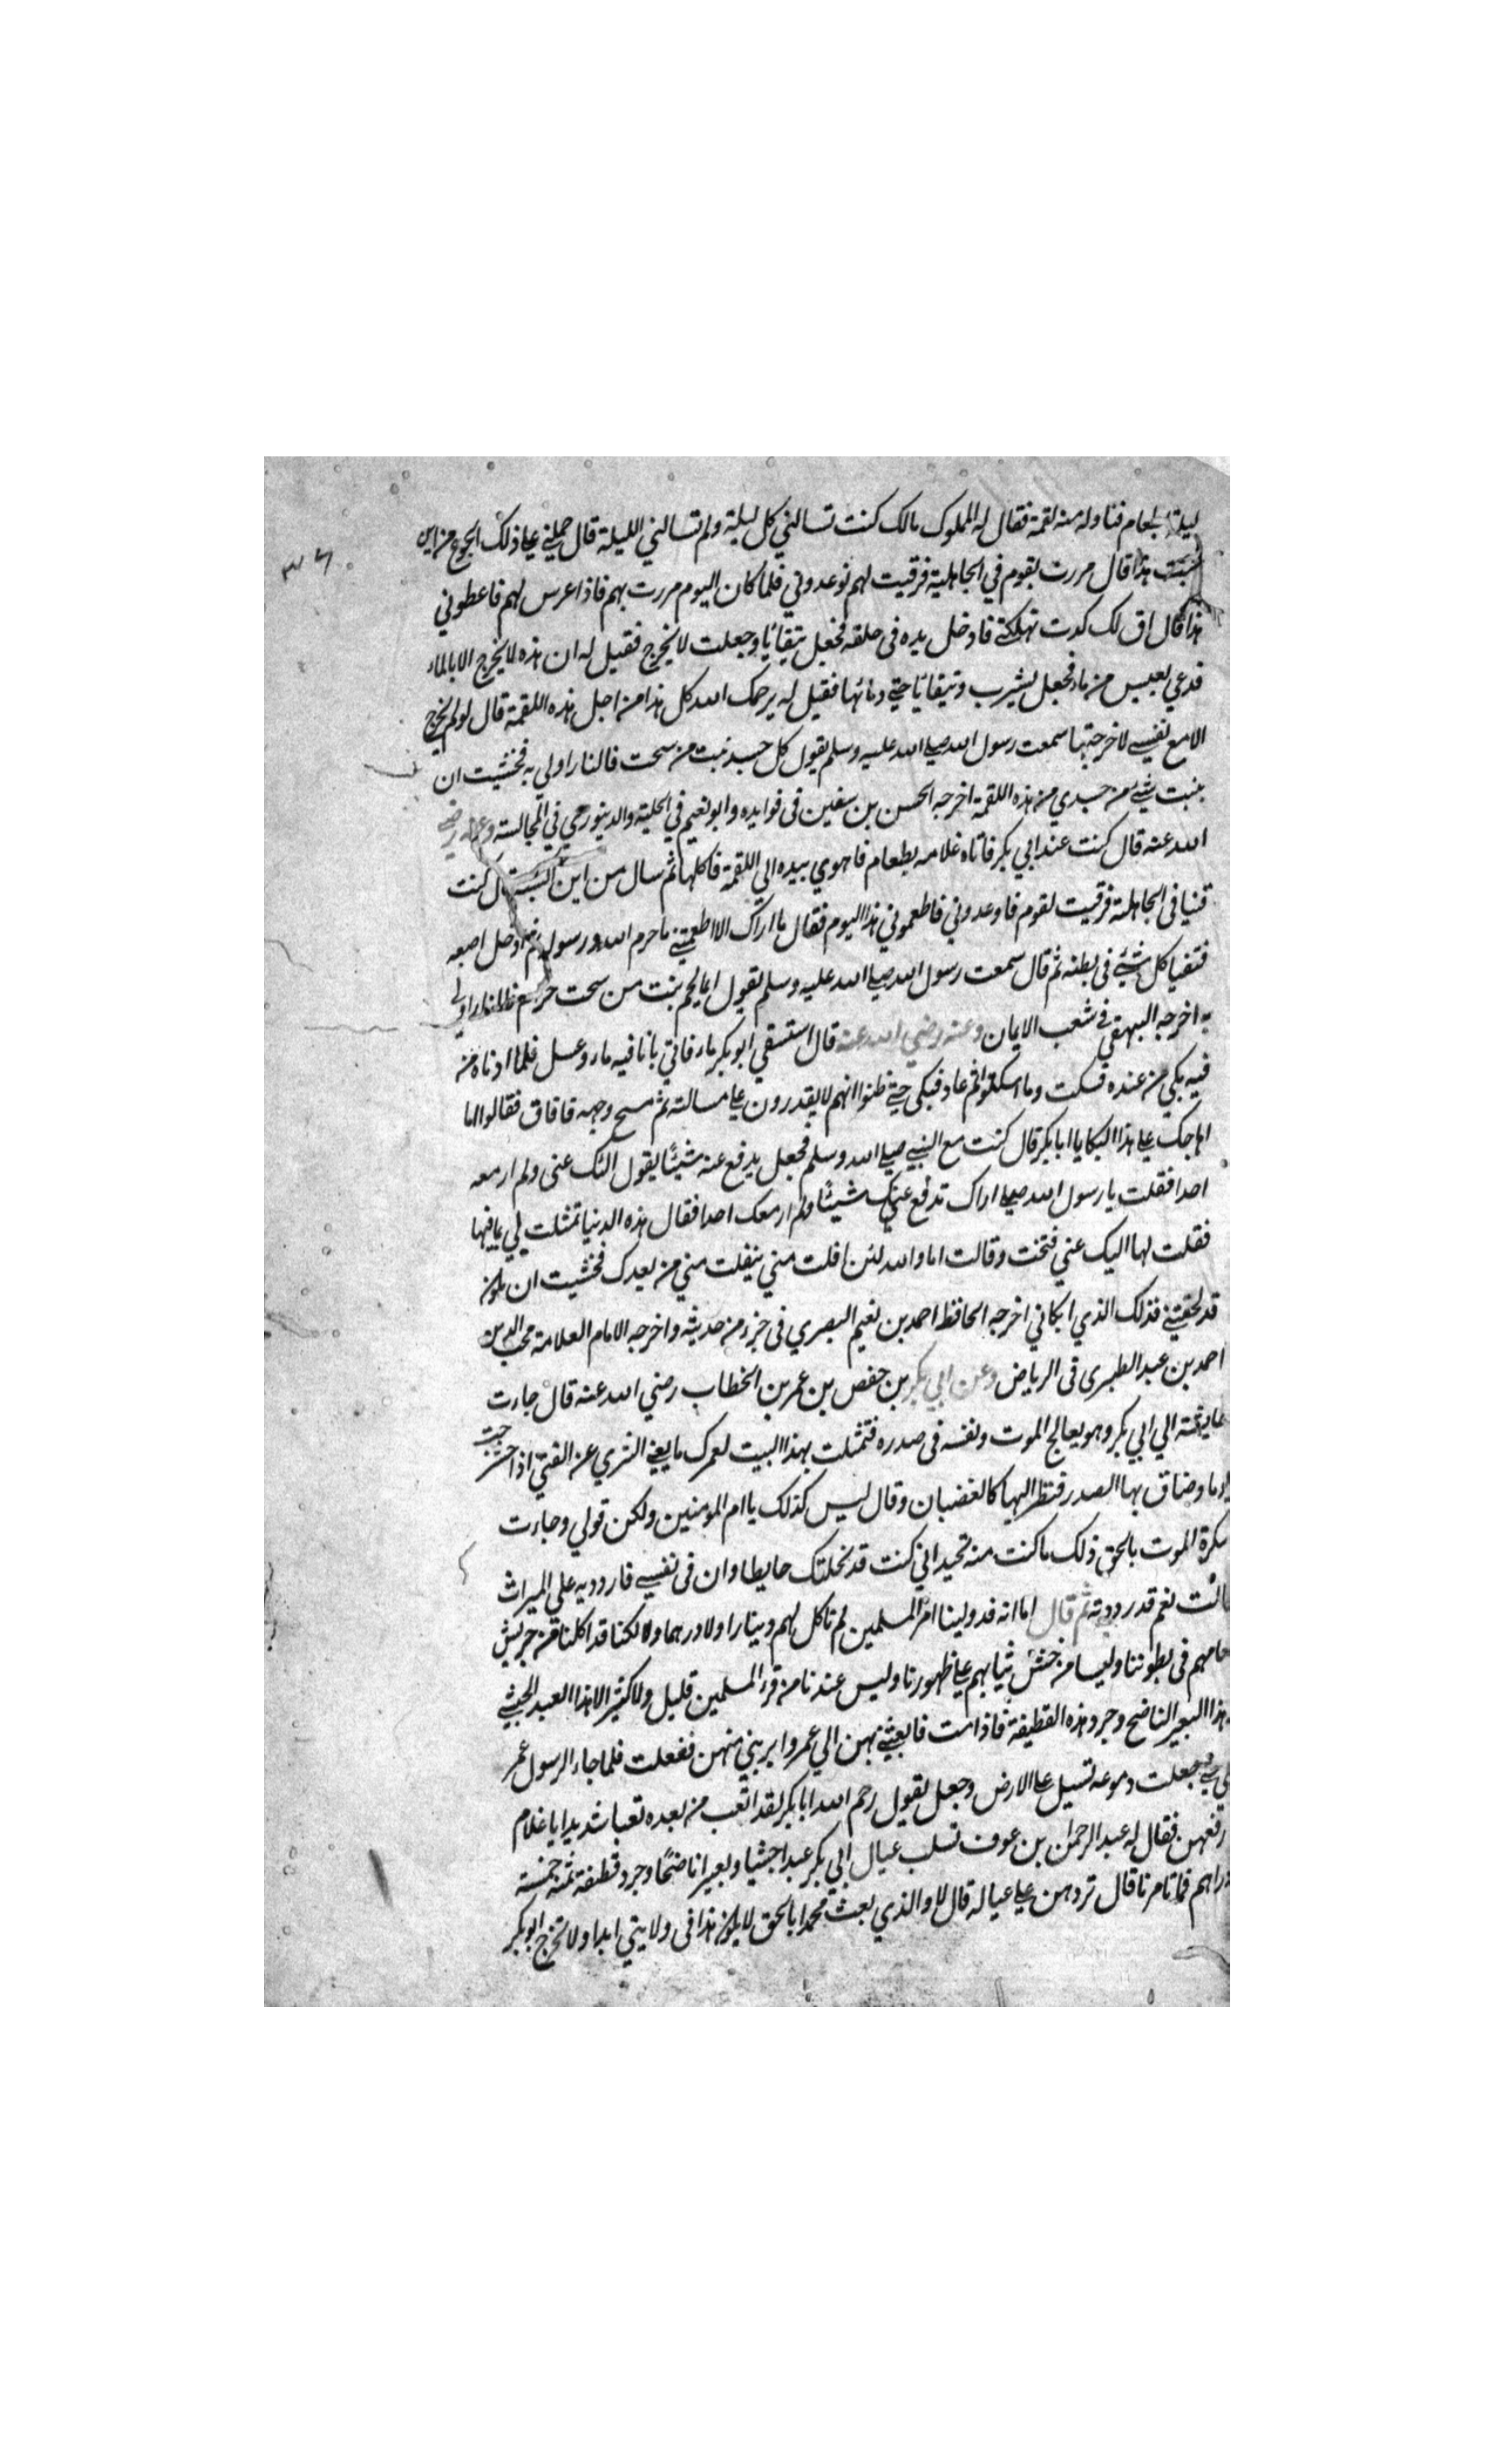 ليلة بطعام فناوله منه لقمة فقال له المملوك مالك كنت تسالني كل ليلة ولم تسالني الليلة قال حملني علي ذلك الجوع من اين
جئت بهذا قال مررت بقوم في الجاهلية فرقيت لهم فوعدوني فلما كان اليوم مررت بهم فاذا عرس لهم فاعطوني
هذا قال اف لك كدت تهلكني فادخل يده في حلقه فجعل يتقايا وجعلت لا تخرج فقيل له ان هذه لا تخرج الا بالماء
فدعي بعس من ماء فجعل يشرب ويتقايا حتي رماها فقيل له يرحمك الله كل هذا من اجل هذه اللقمة قال لو لم تخرج
الا مع نفسي لاخرجتها سمعت رسول الله صلي الله عليه وسلم يقول كل جسد نبت من سحت فالنار اولي به فخشيت ان
ينبت شئ من جسدي من هذه اللقمة اخرجه الحسن بن سفين في فوايده وابو نعيم في الحلية والدينوري في المجالسة وعنه رضي
الله عنه قال كنت عند ابي بكر فاتاه غلامه بطعام فاهوي بيده الي اللقمة فاكلها ثم سال من اين اكتسبته قال كنت
قنيا في الجاهلية فرقيت لقوم فاوعدوني فاطعموني هذا اليوم فقال ما اراك الا اطعمتني ما حرم الله ورسوله ثم ادخل اصبعه
فتقيا كل شئ في بطنه ثم قال سمعت رسول الله صلي الله عليه وسلم يقول ايما لحم نبت من سحت فالنار اولي
به اخرجه البيهقي في شعب الايمان وعنه رضي الله عنه قال استسقي ابو بكر ماء فاتي بانا فيه ماء وعسل فلما ادناه من
فيه بكي من عنده فسكت وما اسكتوا ثم عاد فبكي حتي ظنوا انهم لا يقدرون علي مسالته ثم مسح وجهه فافاق فقالوا ما
اهاجك علي هذا البكا يا ابا بكر قال كنت مع النبي صلي الله وسلم فجعل يدفع عنه شيئا يقول اليك عني ولم ار معه
احدا فقلت يا رسول الله صلي اراك تدفع عنك شيئا ولم ار معك احدا فقال هذه الدنيا تمثلت لي بما فيها
فقلت لها اليك عني فتنحت وقالت اما والله لئن انفلت مني ينفلت مني من بعدك فخشيت ان تكون
قد لحقتني فذلك الذي ابكاني اخرجه الحافظ احمد بن نعيم البصري في جزء من حديثه واخرجه الامام العلامة محب الدين
احمد بن عبد الطبري في الرياض وعن ابي بكر بن حفص بن عمر بن الخطاب رضي الله عنه قال جاءت
عايشة الي ابي بكر وهو يعالج الموت ونفسه في صدره فتمثلت بهذا البيت لعمرك ما يغني الثري عن الفتي اذا حشرجت
يوما وضاق بها الصدر فنظر اليها كالغضبان وقال ليس كذلك يا ام المومنين ولكن قولي وجاءت
سكرة الموت بالحق ذلك ما كنت منه تحيد اني كنت قد نحلتك حايطا وان في نفسي فاردديه علي الميراث
قالت نعم قد رددته ثم قال اما انه قد ولينا امر المسلمين لم ناكل لهم دينارا ولا درهما ولكنا قد اكلنا من جريش
طعامهم في بطوننا ولبسنا من خشن ثيابهم علي ظهورنا وليس عندنا من فئ المسلمين قليل ولا كثير الا هذا العبد الحبشي
وهذا البعير الناضح وجرد هذه القطيفة فاذا مت فابعثي بهن الي عمر وابريني منهن ففعلت فلما جاء الرسول عمر
بكي حتي جعلت دموعه تسيل علي الارض وجعل يقول رحم الله ابا بكر لقد اتعب من بعده تعبا شديدا يا غلام
ارفعهن فقال له عبد الرحمان بن عوف تسلب عيال ابي بكر عبدا حبشيا وبعيرا ناضحا وجرد قطيفة ثمنه خمسة
دراهم فما تامرنا قال تردهن علي عياله قال لا والذي بعث محمدا بالحق لا يكون هذا في ولايتي ابدا ولا تخرج ابو بكر